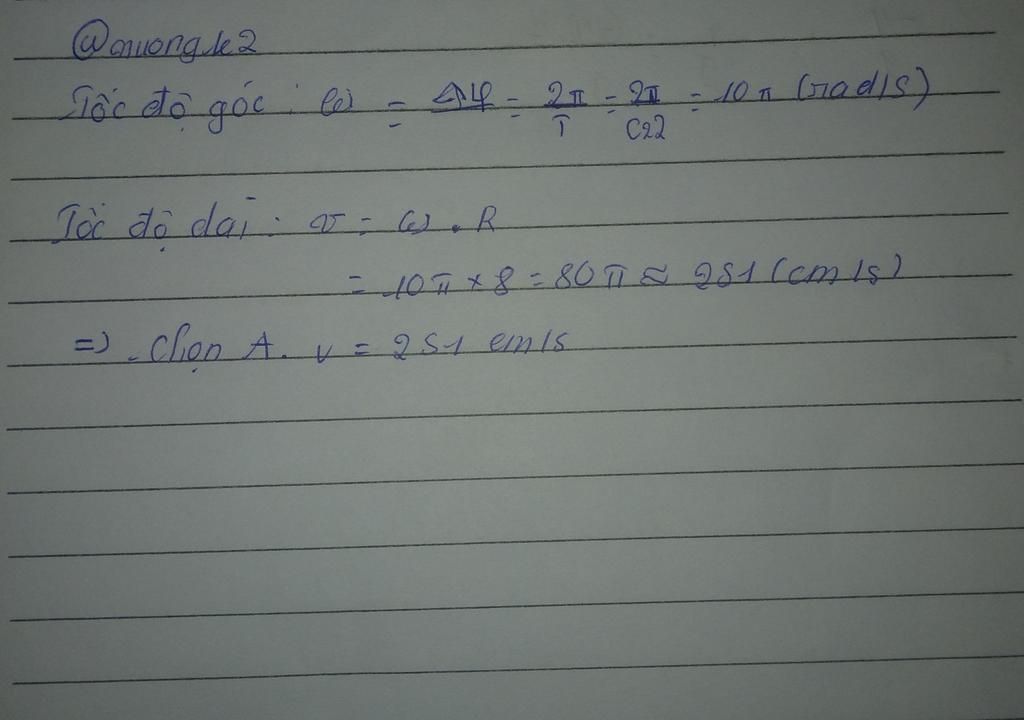 @chuongk2
Tốc độ góc : ω = Δφ = 2π/T = 2π/0,2 = 10π (rad/s)
Tốc độ dài : v = ω . R
= 10π x 8 = 80π ≈ 251 (cm/s)
=> . Chọn A. v = 251 cm/s